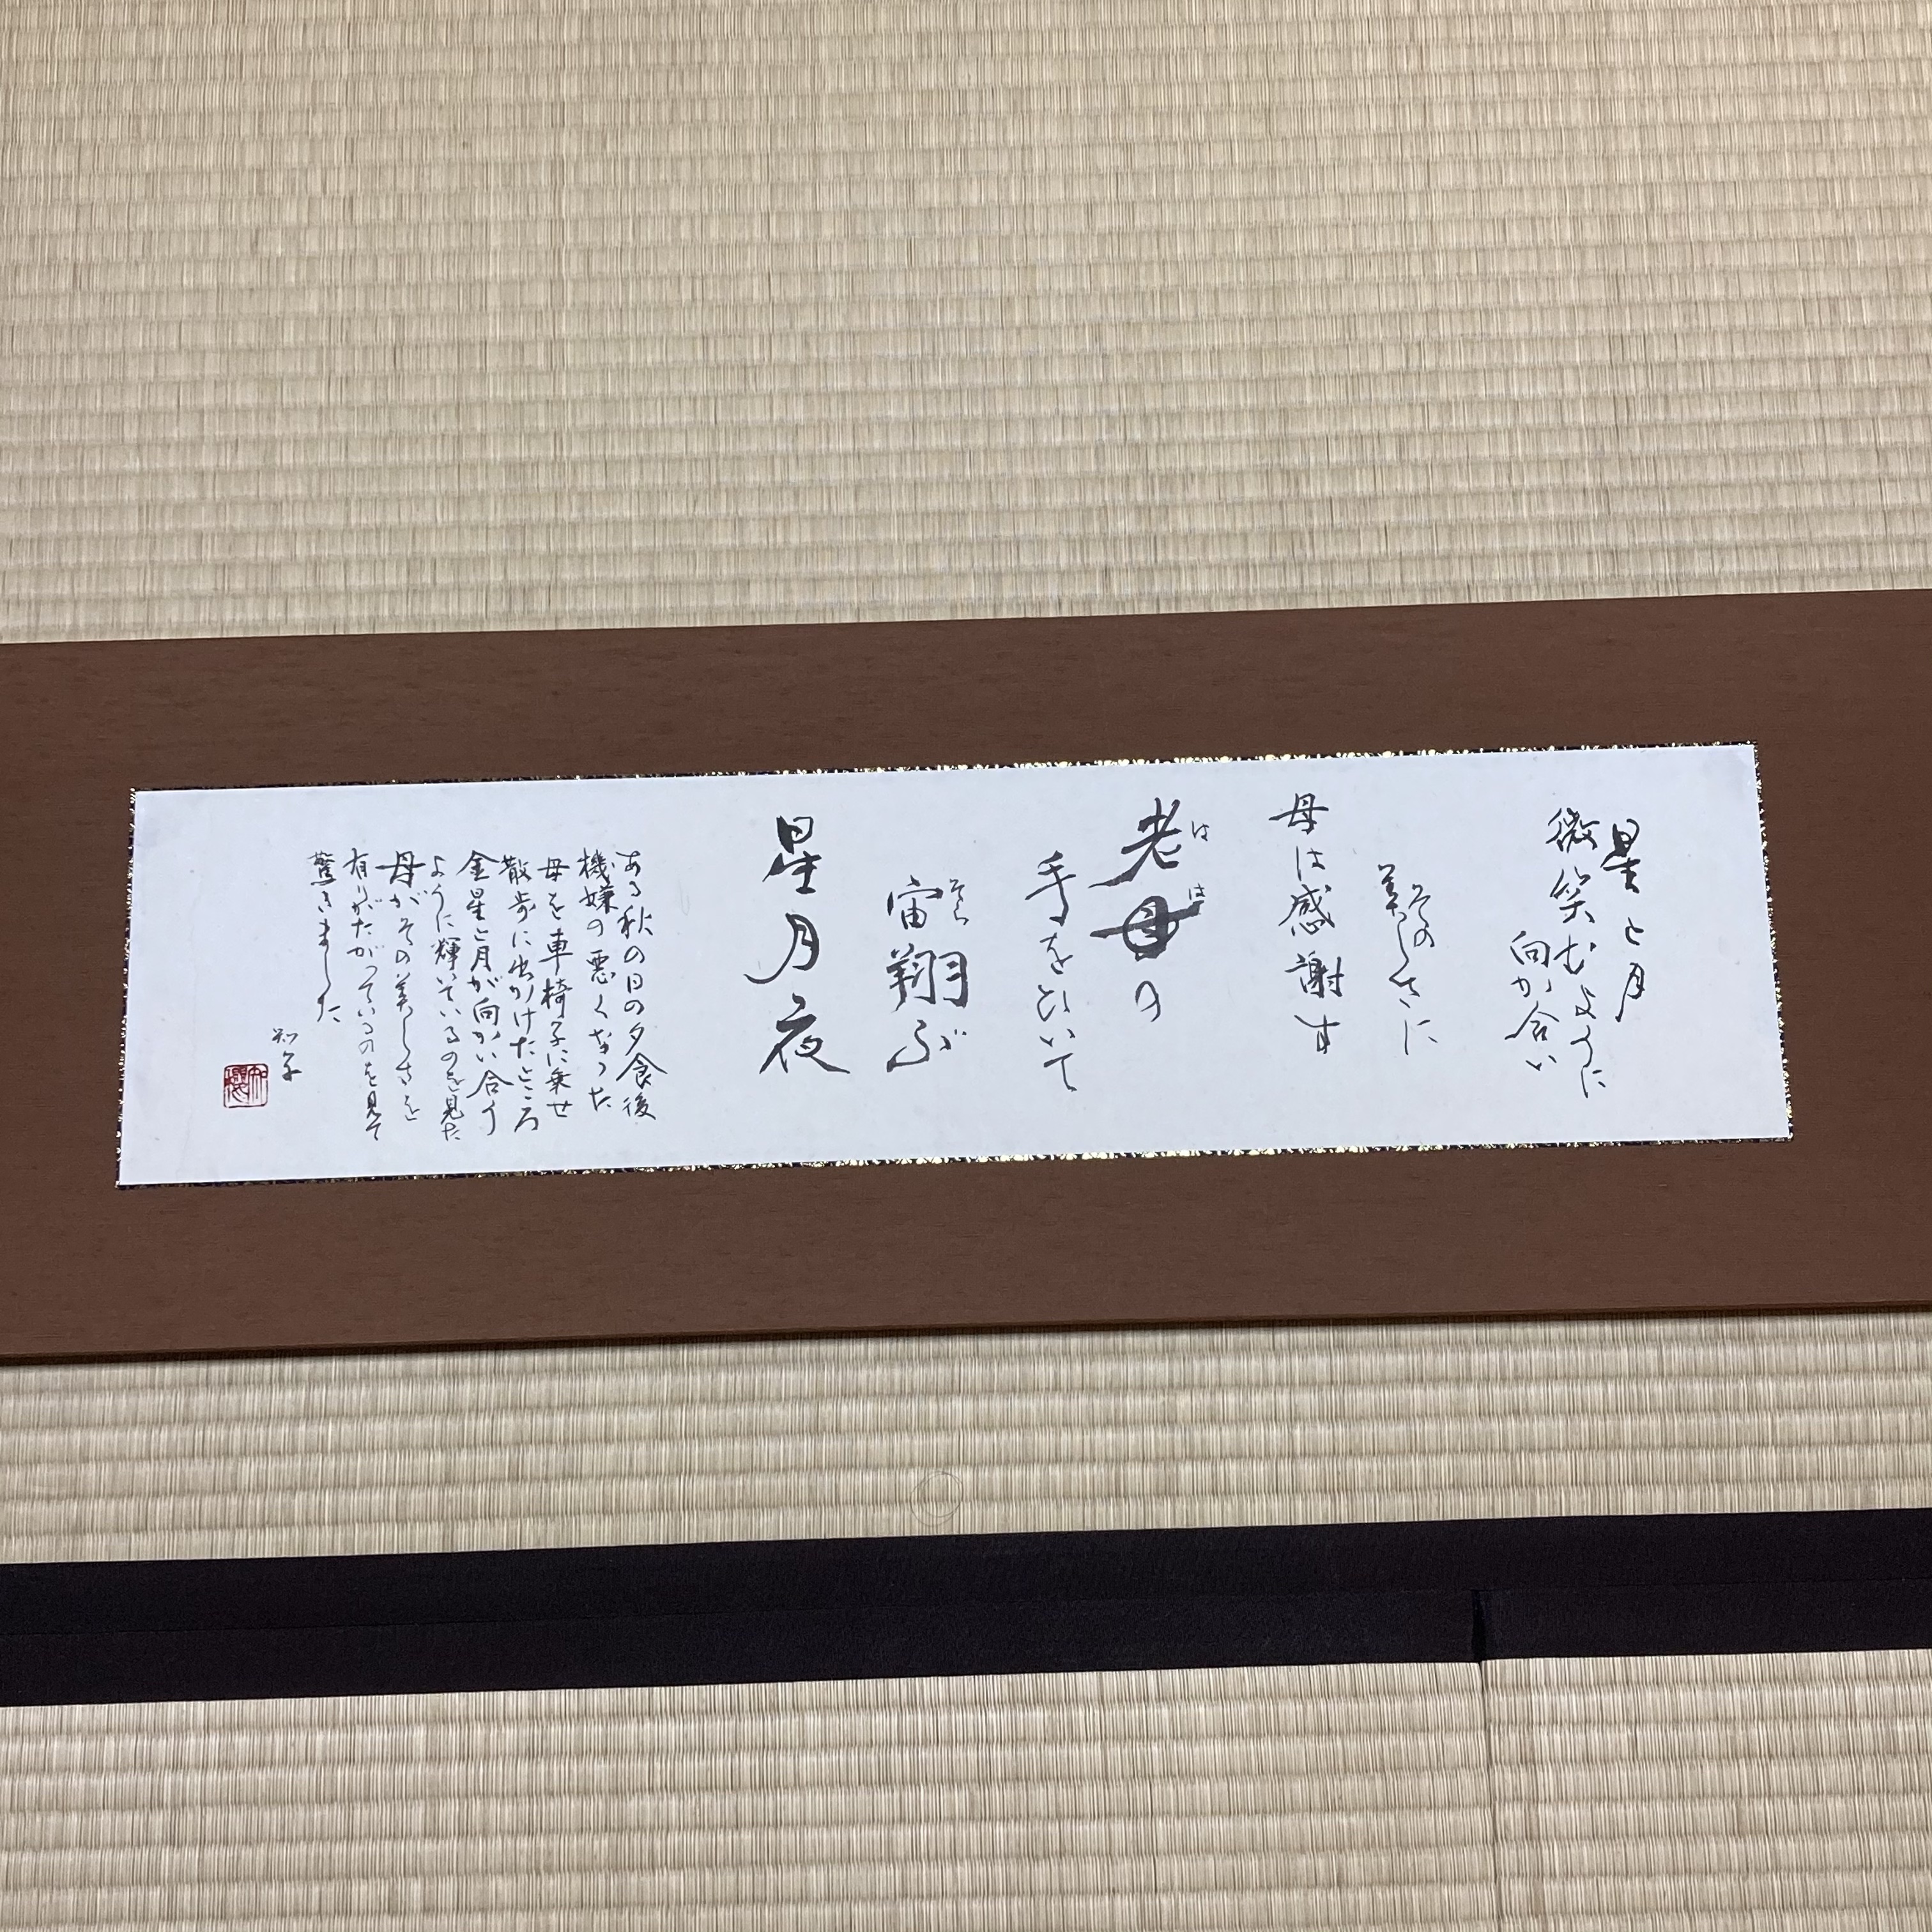 星と月
微笑むように
向か合い
その
美しさに
母は感謝す
老母の
はは
手をひいて
宙翔ぶ
そら
星月夜
ある秋の日の夕食後
機嫌の悪くなった
母を車椅子に乗せ
散歩に出かけたところ
金星と月が向かい合う
ように輝いているのを見た
母がその美しさを
有りがたがっているのを見て
驚きました